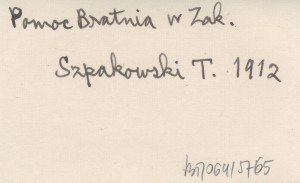 Pomoc Bratnia w Zak.
Szpakowski T. 1912